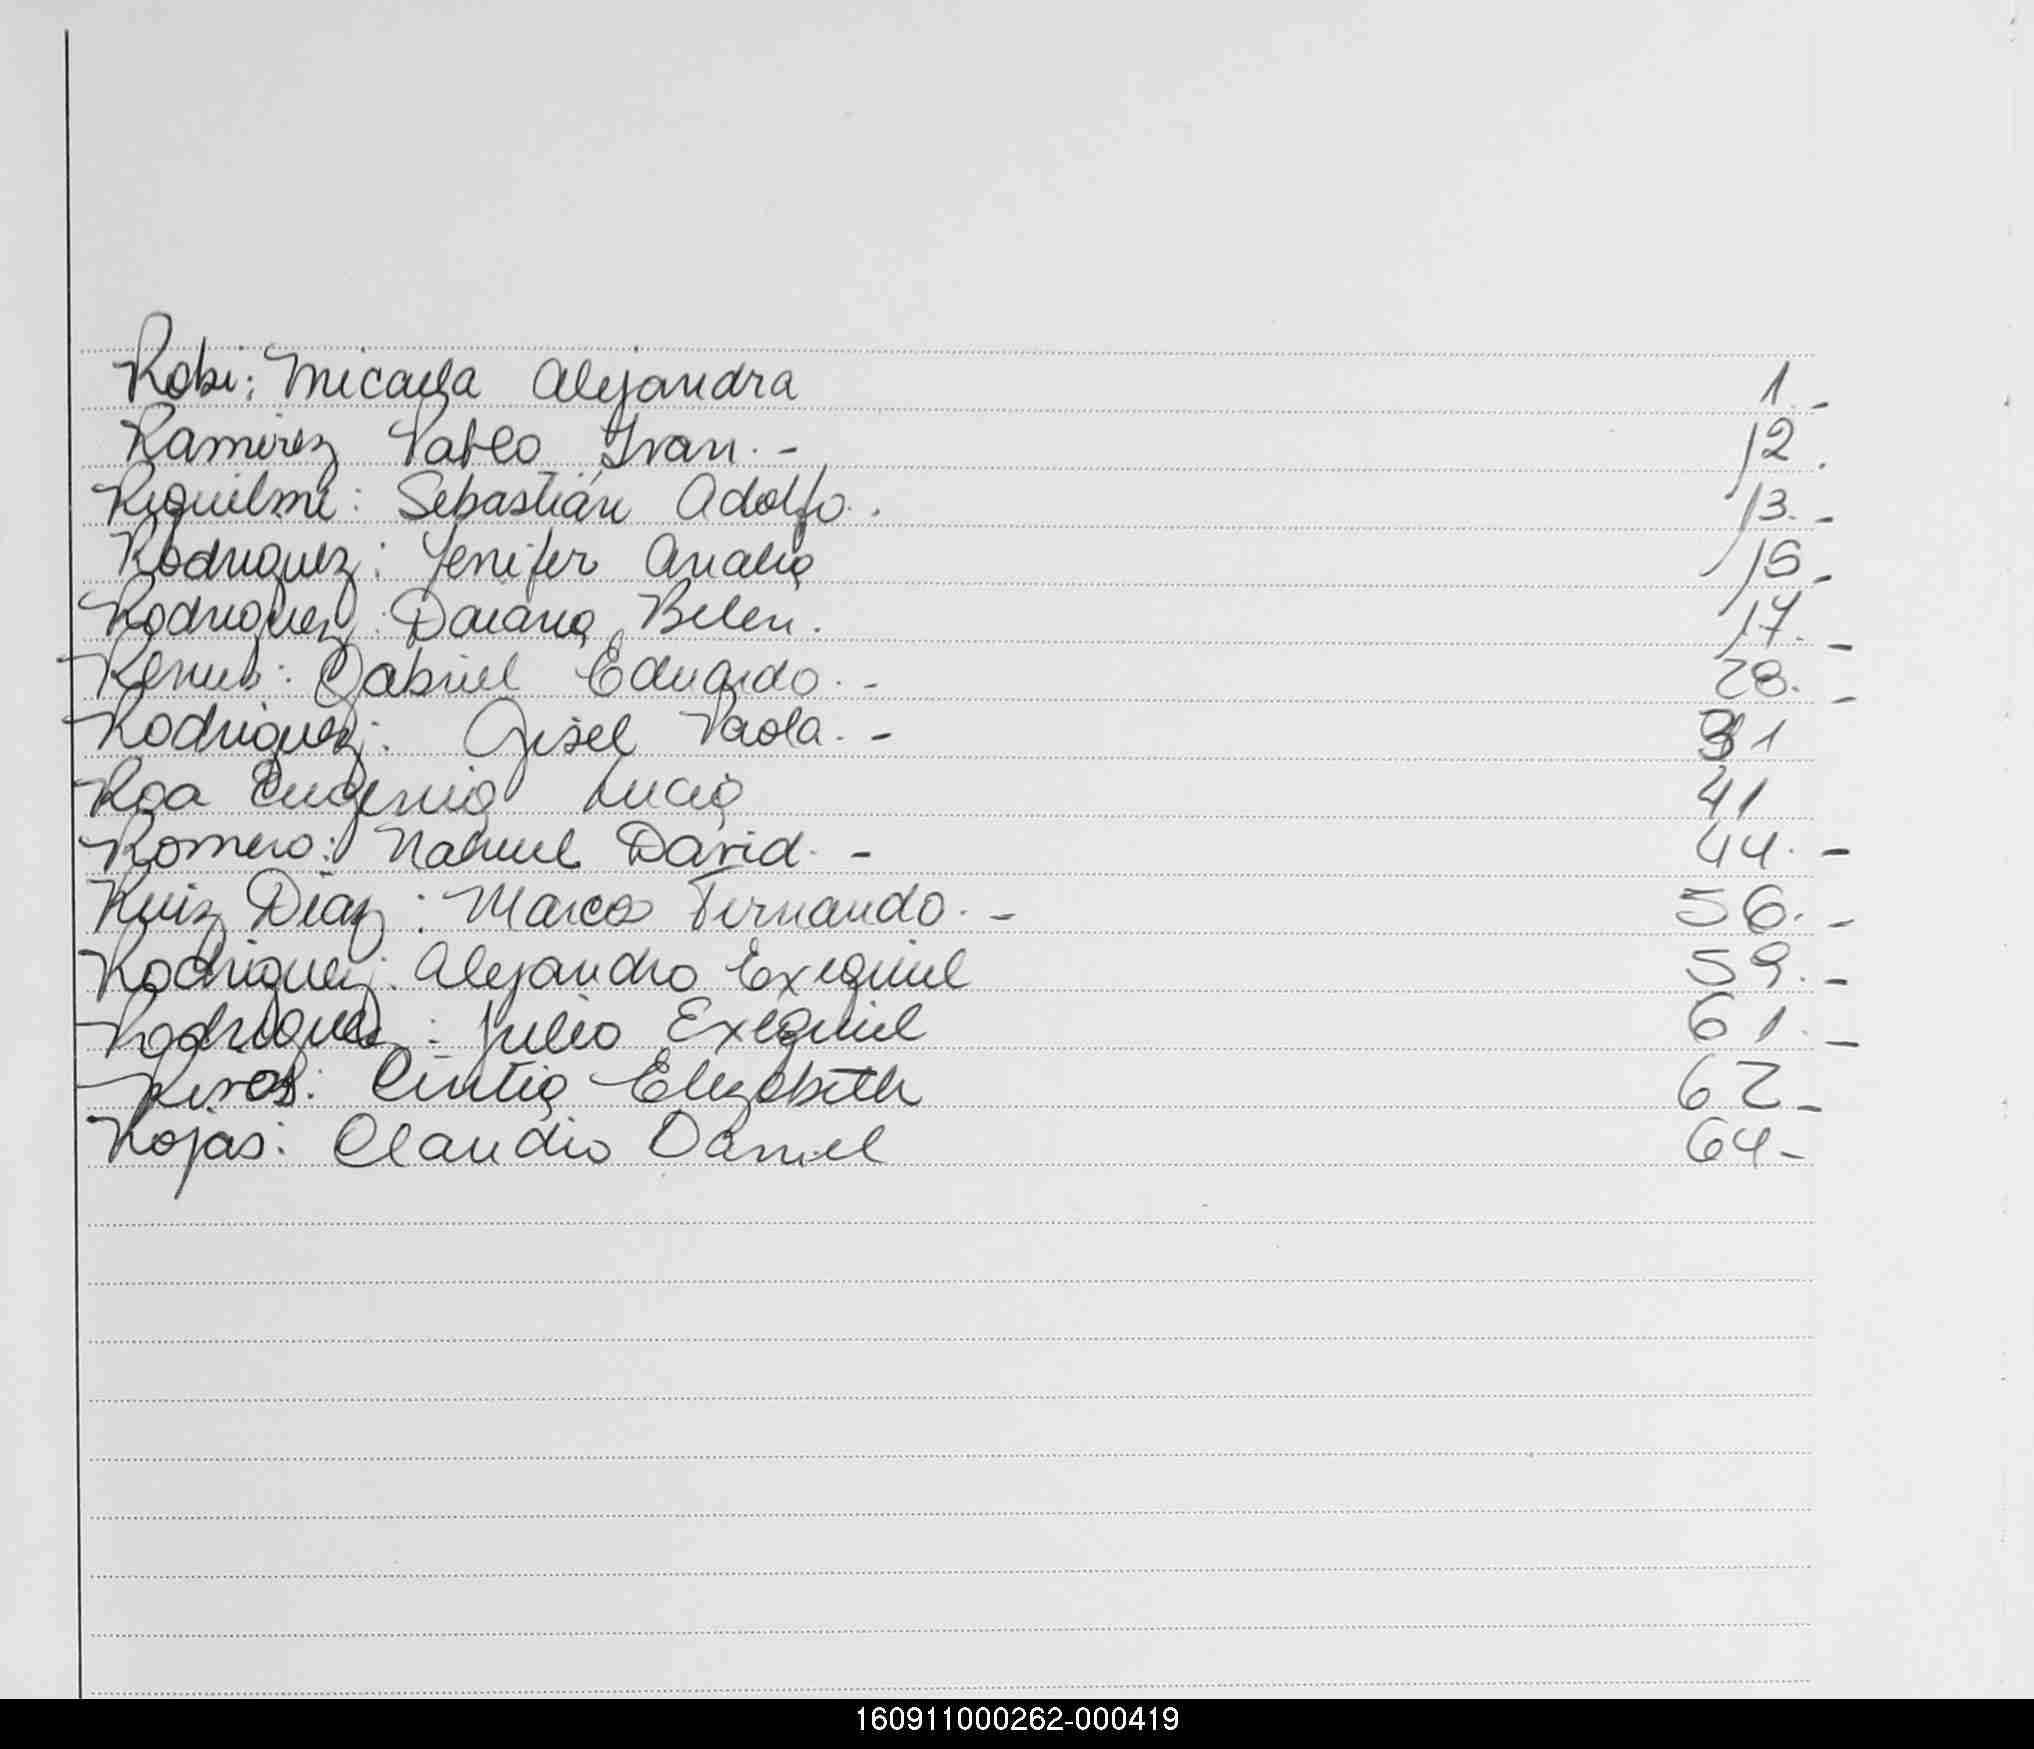 Robi: Micaela Alejandra 1.-
Ramirez Pablo Ivan.- 12.
Riquelme: Sebastián Adolfo. 13.-
Rodriguez: Jenifer Analia 15-
Rodriguez: Daiana Belen. 17.-
Gabriel Eduardo.- 28.-
Rodriguez: Gisel Paola.- 31
Roa Eugenia Lucia 41
Romero: Nahuel David.- 44.-
Ruiz Diaz: Marcos Fernando.- 56.-
Rodriguez: Alejandro Exequiel 59.-
Rodriguez: Julio Exequiel 61.-
Cintia Elizabeth 62-
Rojas: Claudio Daniel 64-
160911000262-000419